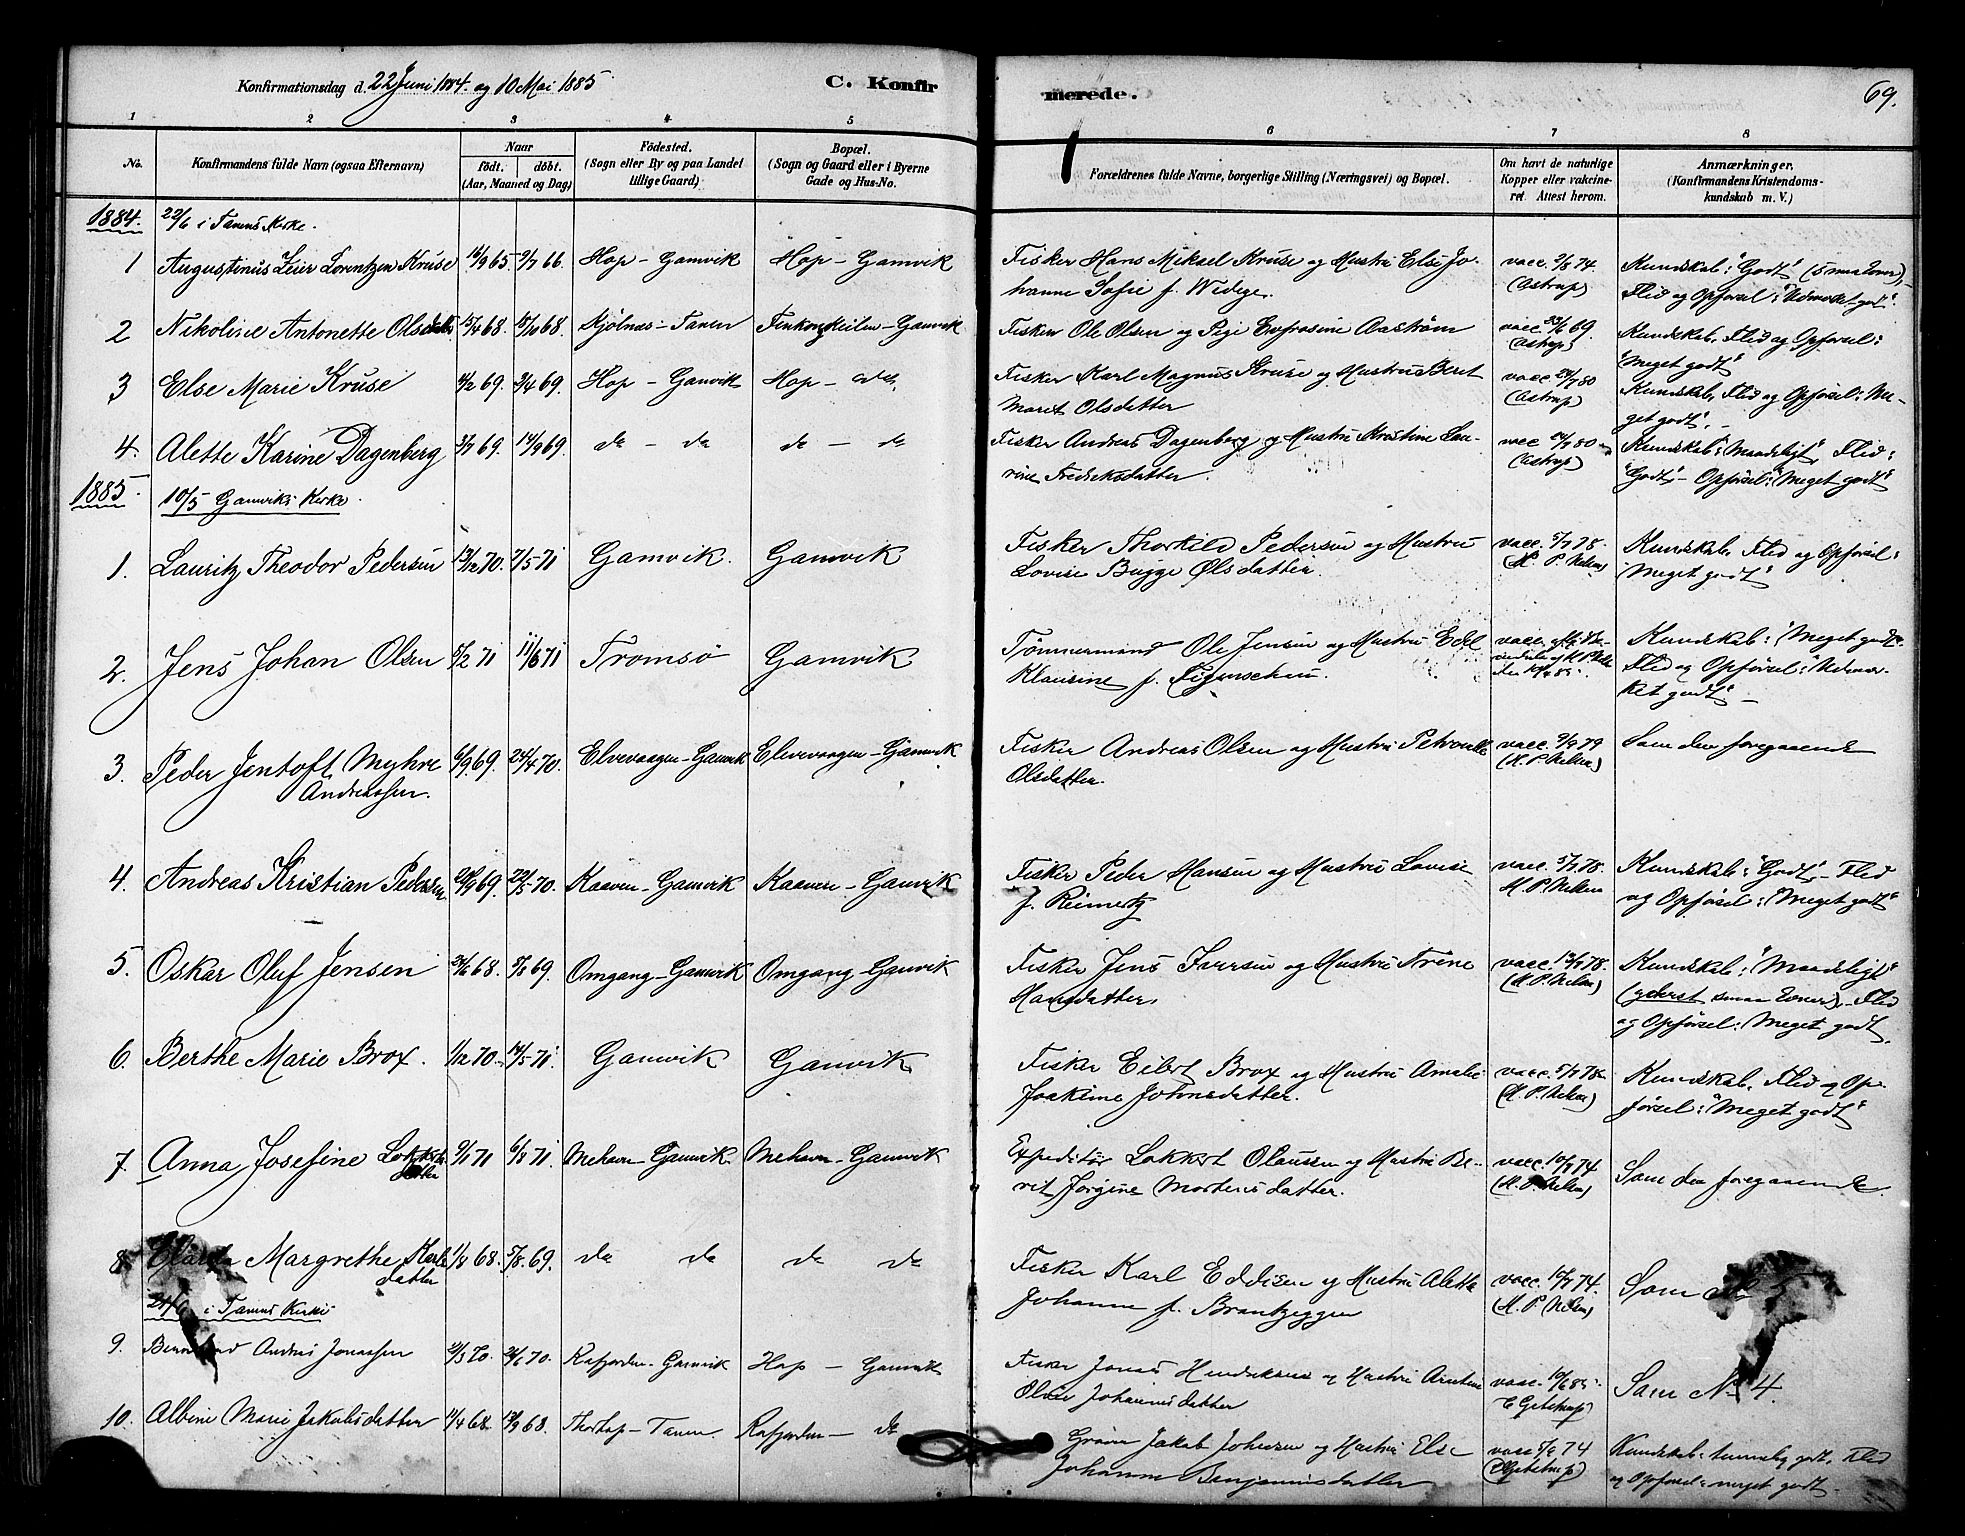 Konfirmationsdag d. 22 Juni 1884. og 10 Mai 1885
C. Konfirmerede.
69.
1 2 3 4 5 6 7 8
No. Konfirmandens fulde Navn (ogsaa Efternavn) Naar født. døbt. (Aar, Maaned og Dag) Fødested. (Sogn eller By og paa Landet tillige Gaard) Bopæl. (Sogn og Gaard eller i Byerne Gade og Hus-No. Forældrenes fulde Navne, borgerlige Stilling (Næringsvei) og Bopæl. Om havt de naturlige Kopper eller vakcineret. Attest herom. Anmærkninger. (Konfirmandens Kristendomskundskab m. V.)
1884. 22/6 i Tanens Kirke.
1 Augustinus Zeier Lorentzen Kruse 16/9 65. 2/7 66. Hop - Gamvik Hop - Gamvik Fisker Hans Mikael Kruse og Hustru Else Jo-
hanne Sofie f. Wedege. vacc. 2/8 74 (Astrup) Kundskab: "Godt"
Flid og Opførsel: "Udmærket godt".
2 Nikoline Antonette Olsdatter 68. 68. Kjölnes - Tanen Finkongkeilen - Gamvik Fisker Ole Olsen og Pige Eufrosine Aastrøm vacc. 69. (Astrup) Kundskab, Flid og Opførsel:
"Meget godt"
3 Else Marie Kruse 4/2 69. 3/4 69. Hop - Gamvik Hop - do. Fisker Karl Magnus Kruse og Hustru Beret
Marit Olsdatter vacc 80 (Astrup) Kundskab, Flid og Opførsel: Me-
get godt".
4. Alette Karine Dagenberg 3/7 69. 14/9 69. do - do do - do Fisker Andreas Dagenberg og Hustru Kristine Lau-
rine Fredriksdatter. vacc 80 (Astrup) Kundskab: "Maadeligt", Flid:
"Godt", - Opførsel: "Meget godt"
1885. 10/5 Gamviks Kirke.
1. Lauritz Theodor Pedersen 13/12 70. 7/5 71 Gamvik. Gamvik Fisker Thorkild Pedersen og Hustru
Lovise Bugge Olsdatter. vacc. 5/7 78. (H. P. Nelsen) Kundskab, Flid og Opførsel:
"Meget godt"
2. Jens Johan Olsen 5/2 71 11/6 71 Tromsø Gamvik Tømmermand Ole Jensen og Hustru Edel
Klausine f. Figenschou. vacc. Kundskab: "Meget godt".
Flid og Opførsel: "Udmær-
ket godt". -
3. Peder Jentoft Myhre
Andreassen. 6/9 69. 24/4 70. Elvevaagen - Gamvik Elvevaagen - Gamvik Fisker Andreas Olsen og Hustru Petronelle
Olsdatter. vacc. 9/9 79 (H. P. Nelsen) Som den foregaaende
4. Andreas Kristian Pedersen 69. 22/5 70. Kaaven - Gamvik Kaaven - Gamvik Fisker Peder Hansen og Hustru Lovise
f. Reimertz vacc. 5/7 78. H. P. Nelsen Kundskab: "Godt", - Flid
og Opførsel: "Meget godt"
5. Oskar Oluf Jensen 68. 69. Omgang - Gamvik Omgang - Gamvik Fisker Jens Iversen og Hustru Trine
Hansdatter. vacc. 78. (H. P. Nelsen) Kundskab: "Maadeligt"
(yderst smaa Evner), - Flid
og Opførsel: Meget godt.
6. Berthe Marie Brox. 1/12 70. 14/5 71. Gamvik Gamvik Fisker Eilert Brox og Hustru Amalie
Joakime Johnsdatter. vacc. 5/7 78 (H. P. Nelsen) Kundskab, Flid og Op-
førsel: "Meget godt"
7. Anna Josefine Lokkerts-
datter 9/1 71 6/8 71. Mehavn - Gamvik. Mehavn - Gamvik Expeditør Lokkert Olaussen og Hustru Be-
rit Jørgine Mortensdatter. vacc. 74 (H. P. Nelsen) Som den foregaaende.
8. Margrethe Karls-
datter 1/8 68. 5/8 69. do do do do Fisker Karl Eddisen og Hustru Alette
Johanne f. Brantzeggen vacc. 74. (H. P. Nelsen) Som
i Tanens Kirke
9. Andreas Jonassen 70. 70. Kafjorden - Gamvik Hop - Gamvik Fisker Jonas Hendriksen og Hustru
Oline Johannesdatter vacc. Som No 4.
10. Albine Marie Jakobsdatter 11/4 68. 13/9 68. Tanen Kafjorden - do Jakob Johnsen og Hustru Else
Johanna Benjaminsdatter vacc 74 Kundskab: temmelig godt, Flid
og Opførsel: meget godt.